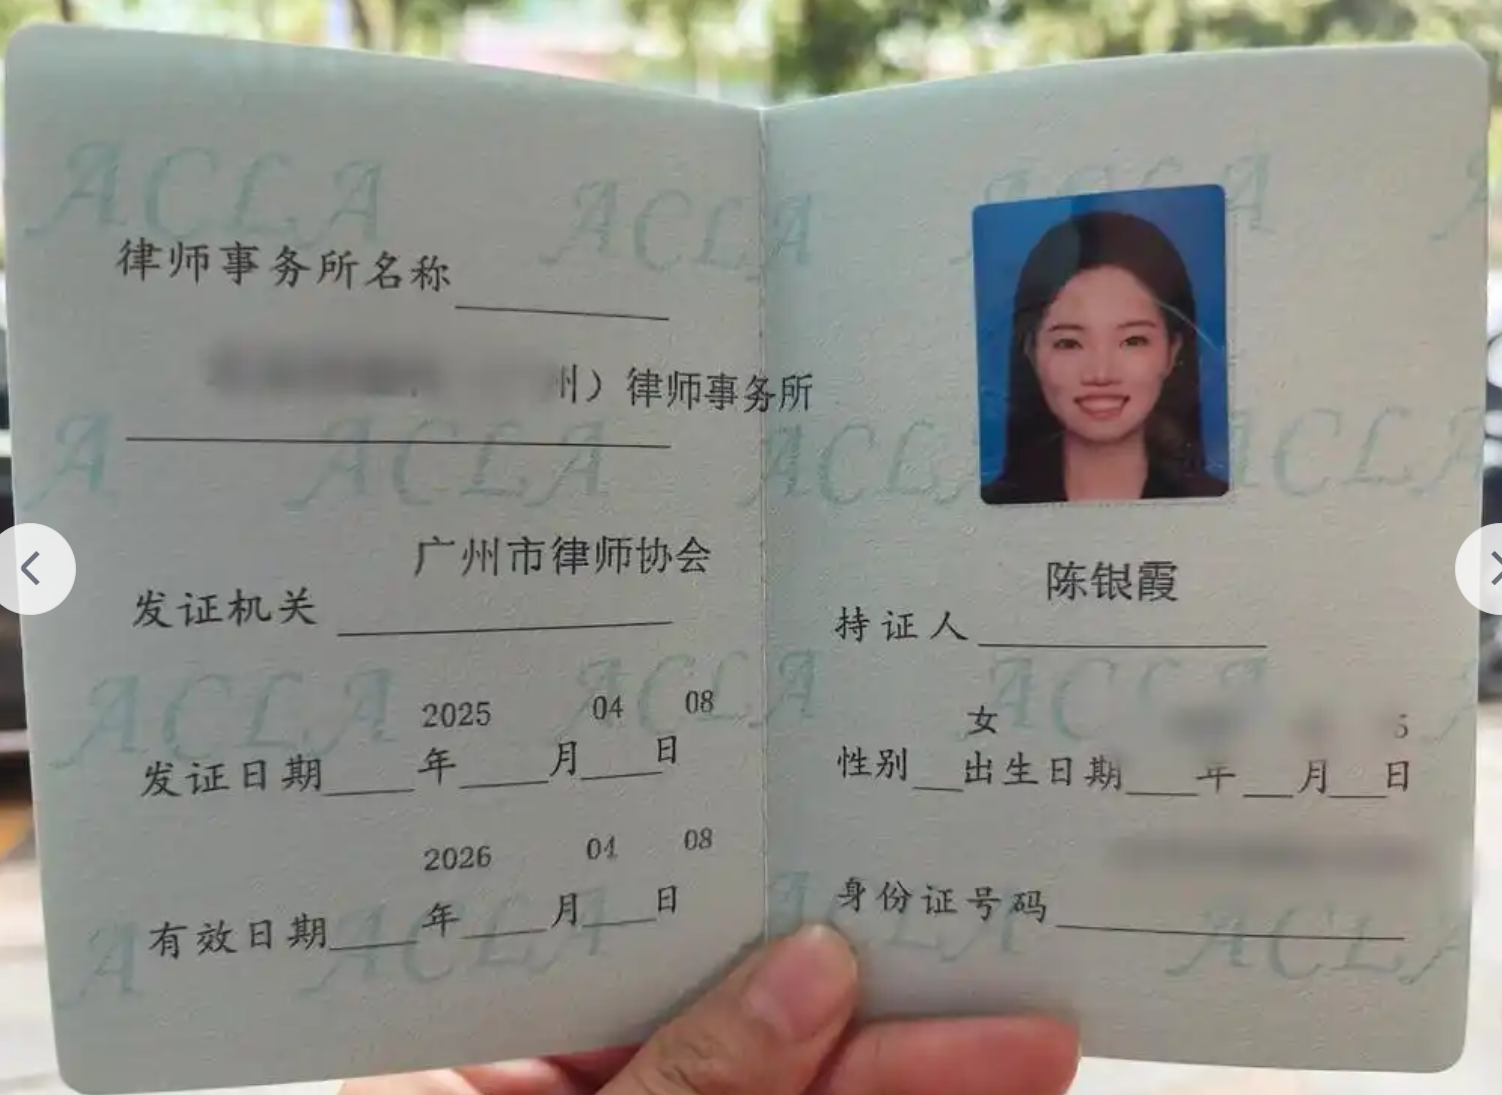 律师事务所名称
州）律师事务所
发证机关 广州市律师协会
发证日期 2025 年 04 月 08 日
有效日期 2026 年 04 月 08 日
陈银霞
持证人
性别 女 出生日期 年 月 5 日
身份证号码
ACLA
ACLA
ACLA
A
ACLA
ACLA
ACLA
ACLA
ACLA
ACLA
A
ACLA
ACLA